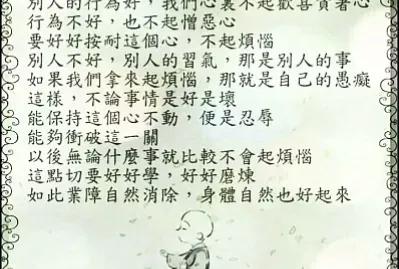 別人的行為好，我們心裏不起歡喜貪著心
行為不好，也不起憎惡心
要好好按耐這個心，不起煩惱
別人不好，別人的習氣，那是別人的事
如果我們拿來起煩惱，那就是自己的愚癡
這樣，不論事情是好是壞
能保持這個心不動，便是忍辱
能夠衝破這一關
以後無論什麼事就比較不會起煩惱
這點切要好好學，好好磨煉
如此業障自然消除，身體自然也好起來